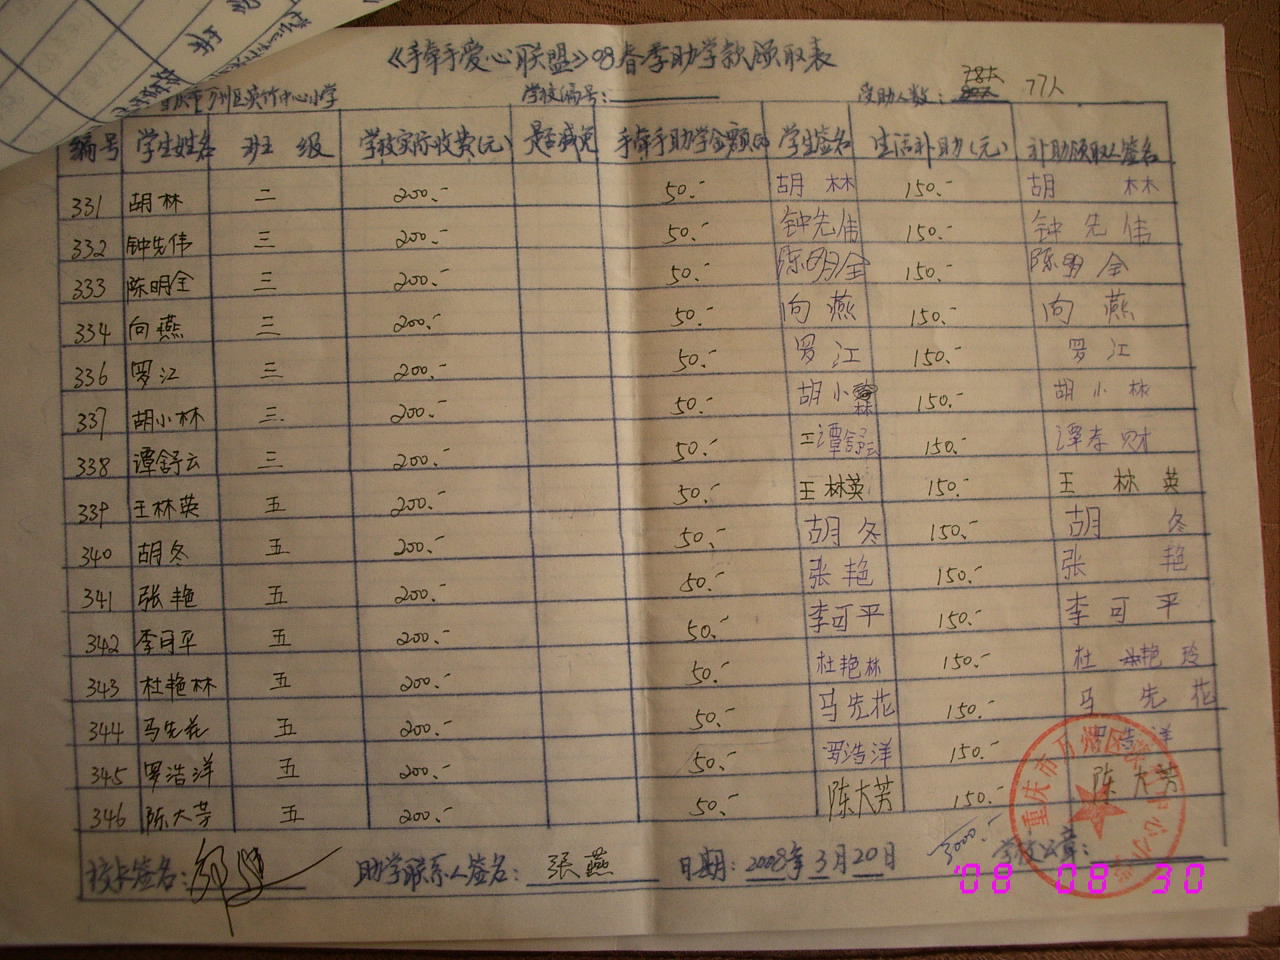 《手牵手爱心联盟》08春季助学款领取表
重庆市万州区 中心小学 学校编号: 受助人数: 78人 77人
编号 学生姓名 班 级 学校实际收费(元) 是否减免 手牵手助学金额(元) 学生签名 生活补助(元) 补助领取人签名
331 胡林 二 200.- 50.- 胡林 150.- 胡林
332 钟先伟 三 200.- 50.- 钟先伟 150.- 钟先伟
333 陈明全 三 200.- 50.- 陈明全 150.- 陈明全
334 向燕 三 200.- 50.- 向燕 150.- 向燕
336 罗江 三 200.- 50.- 罗江 150.- 罗江
337 胡小林 三 200.- 50.- 胡小林 150.- 胡小林
338 谭舒云 三 200.- 50.- 谭舒云 150.- 谭李财
339 王林英 五 200.- 50.- 王林英 150.- 王林英
340 胡冬 五 200.- 50.- 胡冬 150.- 胡冬
341 张艳 五 200.- 50.- 张艳 150.- 张艳
342 李可平 五 200.- 50.- 李可平 150.- 李可平
343 杜艳林 五 200.- 50.- 杜艳林 150.- 杜艳玲
344 马先花 五 200.- 50.- 马先花 150.- 马先花
345 罗浩洋 五 200.- 50.- 罗浩洋 150.- 罗浩洋
346 陈大芳 五 200.- 50.- 陈大芳 150.- 陈大芳
3000.-
校长签名: 助学联系人签名: 张燕 日期: 2008年3月20日 学校公章:
重庆市万州区 中心小学
'08 08 30